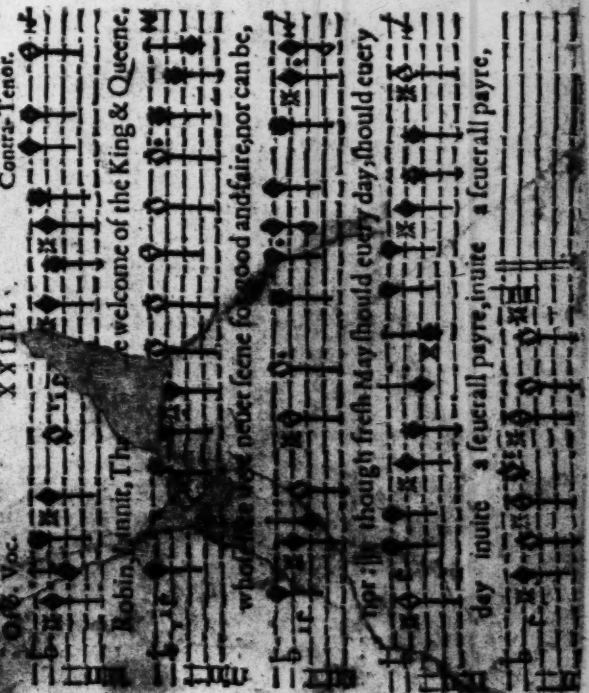 Voc. XXIIII. Contra-Tenor.
Robin, Th welcome of the King & Queene,
neuer ſeene good and faire, nor can be,
nor :ill: though freſh May ſhould euery day, ſhould euery
day inuite a ſeuerall payre, inuite a ſeuerall payre,